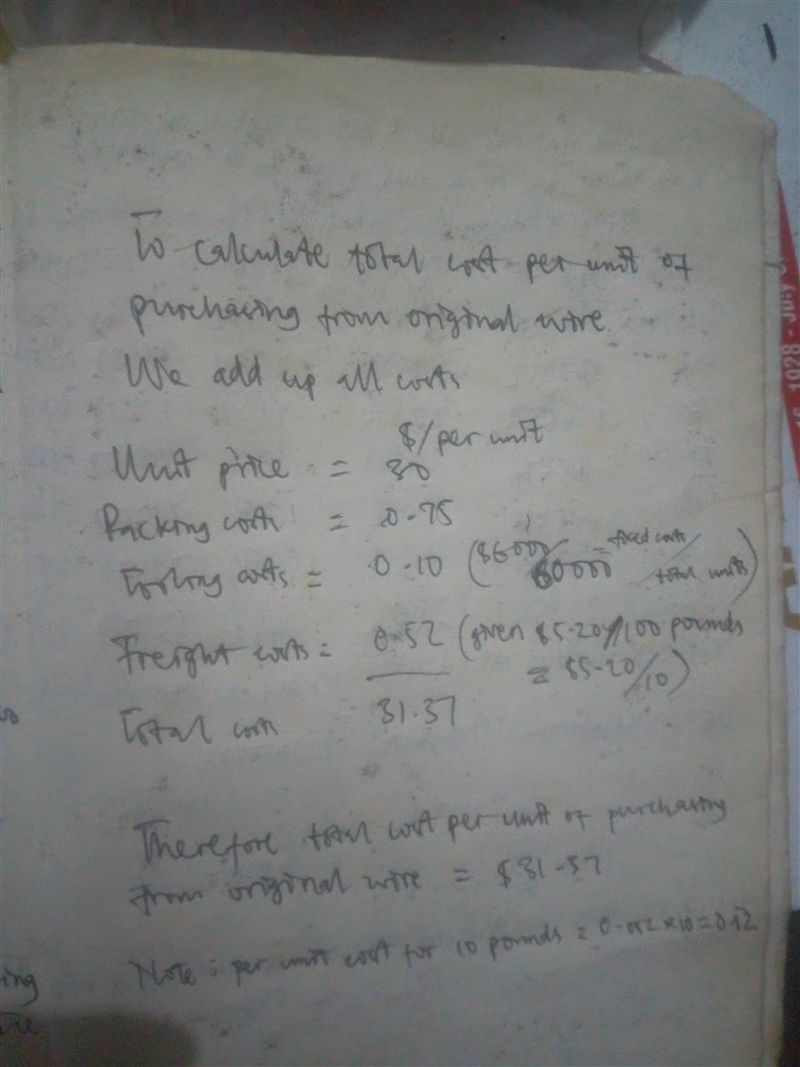 To calculate total cost per unit of
purchasing from original wire
We add up all costs
$/per unit
Unit price = 30
Packing costs = 0.75
Tooling costs = 0.10 ($6000/60000 = fixed costs/total units)
Freight costs = 0.52 (given $5.20/100 pounds
= $5.20/10)
Total costs 31.37
Therefore total cost per unit of purchasing
from original wire = $31.37
Note: per unit cost for 10 pounds = 0.052 x 10 = 0.52
1928 -
ing